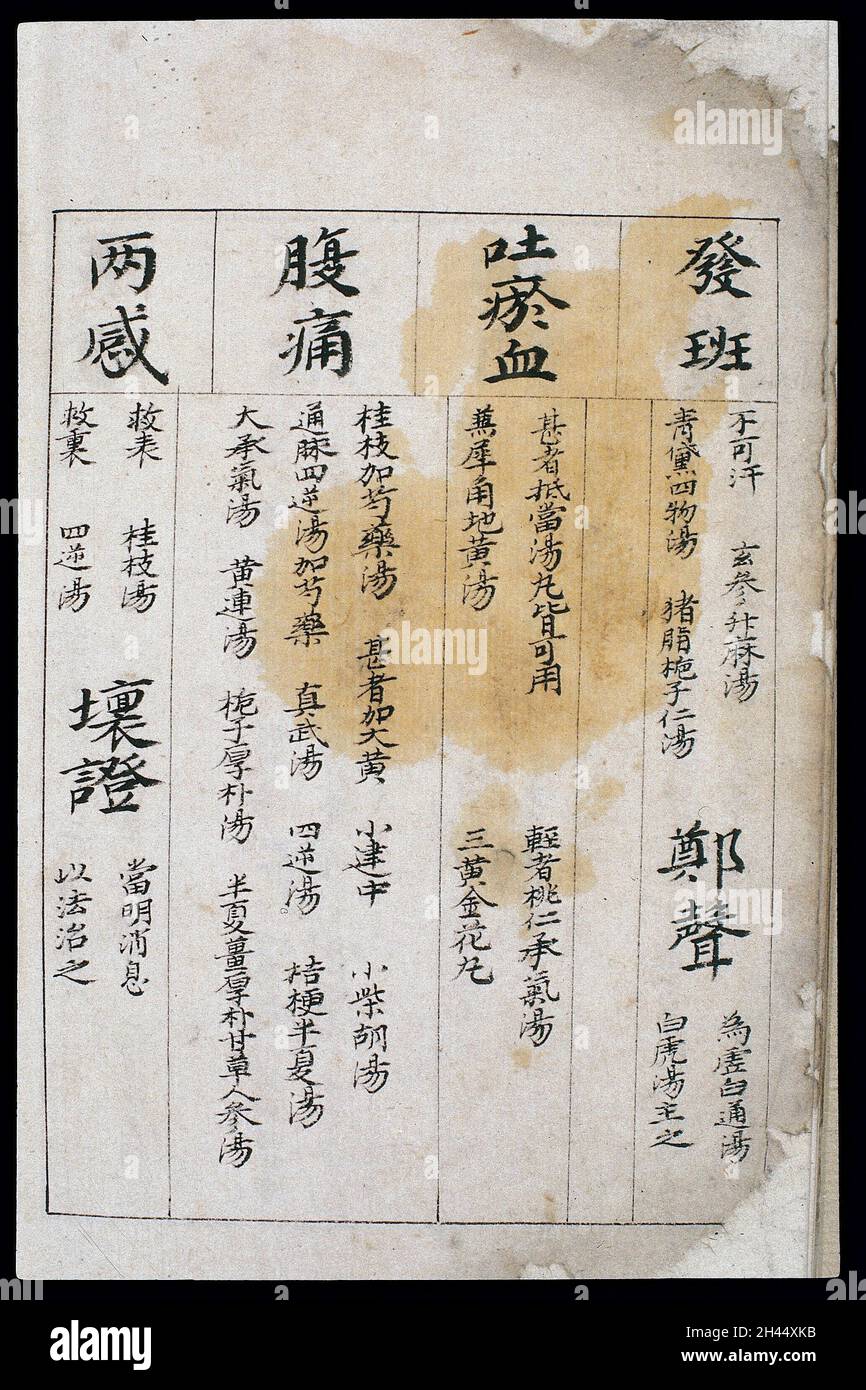 發班
不可汗 玄參升麻湯
青黛四物湯 猪脂梔子仁湯
鄭聲
為虛白通湯
白虎湯主之
吐瘀血
甚者抵當湯丸皆可用
輕者桃仁承氣湯
兼犀角地黄湯
三黄金花丸
腹痛
桂枝加芍藥湯 甚者加大黄 小建中 小柴胡湯
通脉四逆湯加芍藥 真武湯 四逆湯 桔梗半夏湯
大承氣湯 黄連湯 梔子厚朴湯 半夏薑厚朴甘草人參湯
两感
救表 桂枝湯
救裏 四逆湯
壞證
當明消息
以法治之
alamy
Image ID: 2H44XKB
www.alamy.com